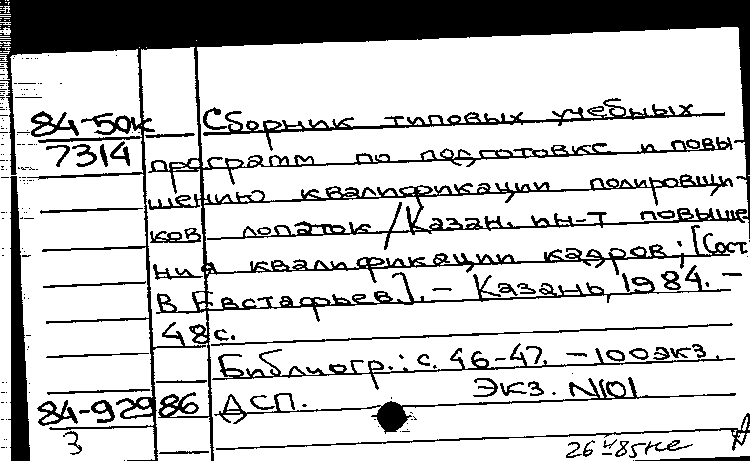 84-50к Сборник типовых учебных
7314 программ по подготовке и повы-
шению квалификации полировщи-
ков лопаток / Казан. ин-т повыше
ния квалификации кадров; [Сост
В Евстафьев.]. - Казань, 1984. -
48 с.
Библиогр.: с. 46-47. - 100 экз.
84-92986 ДСП. Экз. N101
3
26